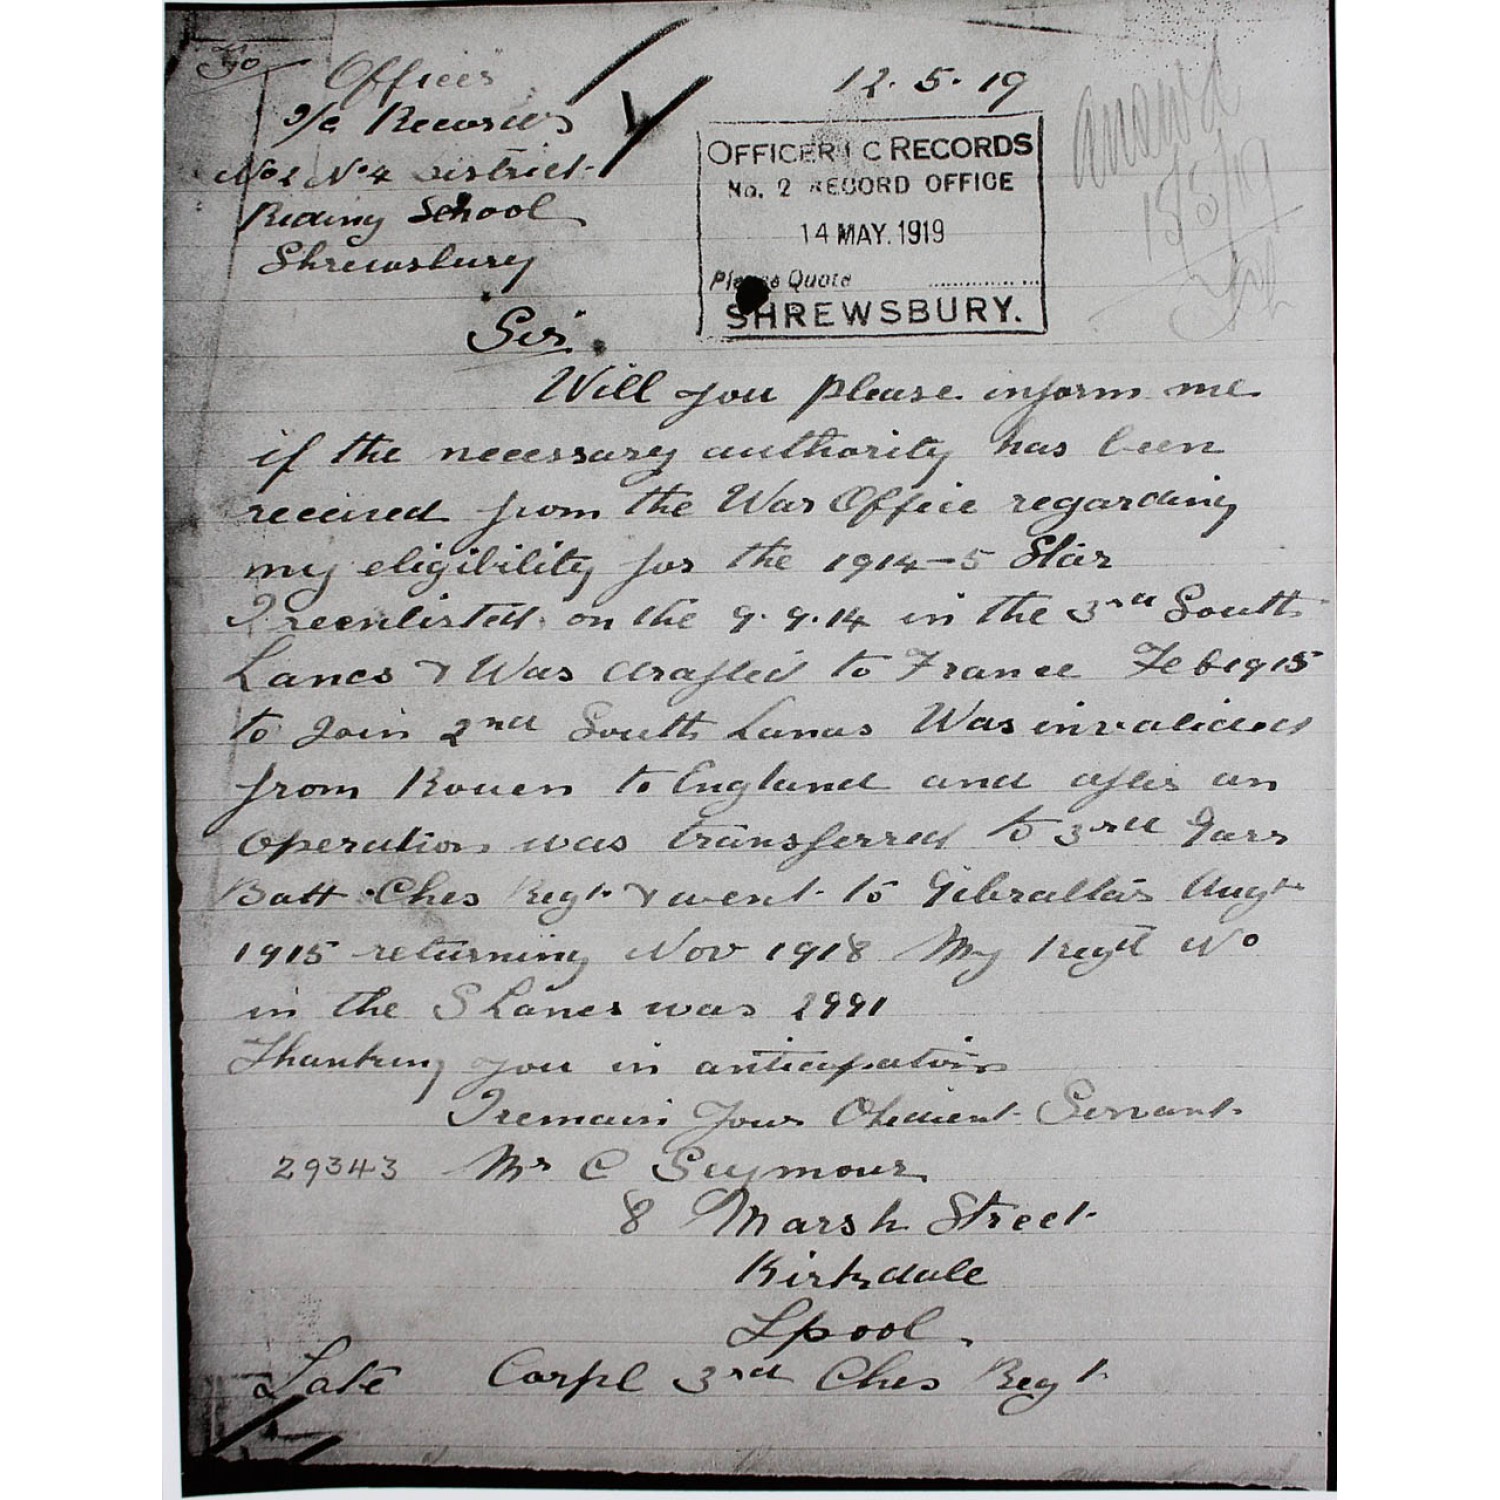 To
Officer
i/c Records
No 2 No 4 District
Riding School
Shrewsbury
12.5.19
OFFICER I C RECORDS
No. 2 RECORD OFFICE
14 MAY. 1919
Please Quote
SHREWSBURY.
answd
15/5/19
Sir.
Will you please inform me
if the necessary authority has been
received from the War Office regarding
my eligibility for the 1914-5 Star
I reenlisted on the 9.9.14 in the 3rd South
Lancs & Was drafted to France Feb 1915
to Join 2nd South Lancs Was invalided
from Rouen to England and after an
operation was transferred to 3rd Garr
Batt Ches Regt & went to Gibraltar Augt
1915 returning Nov 1918 My Regtl No
in the S Lancs was 2991
Thanking you in anticipation
I remain Your Obedient Servant
29343 Mr C Seymour
8 Marsh Street
Kirkdale
Lpool.
Late Corpl 3rd Ches Regt